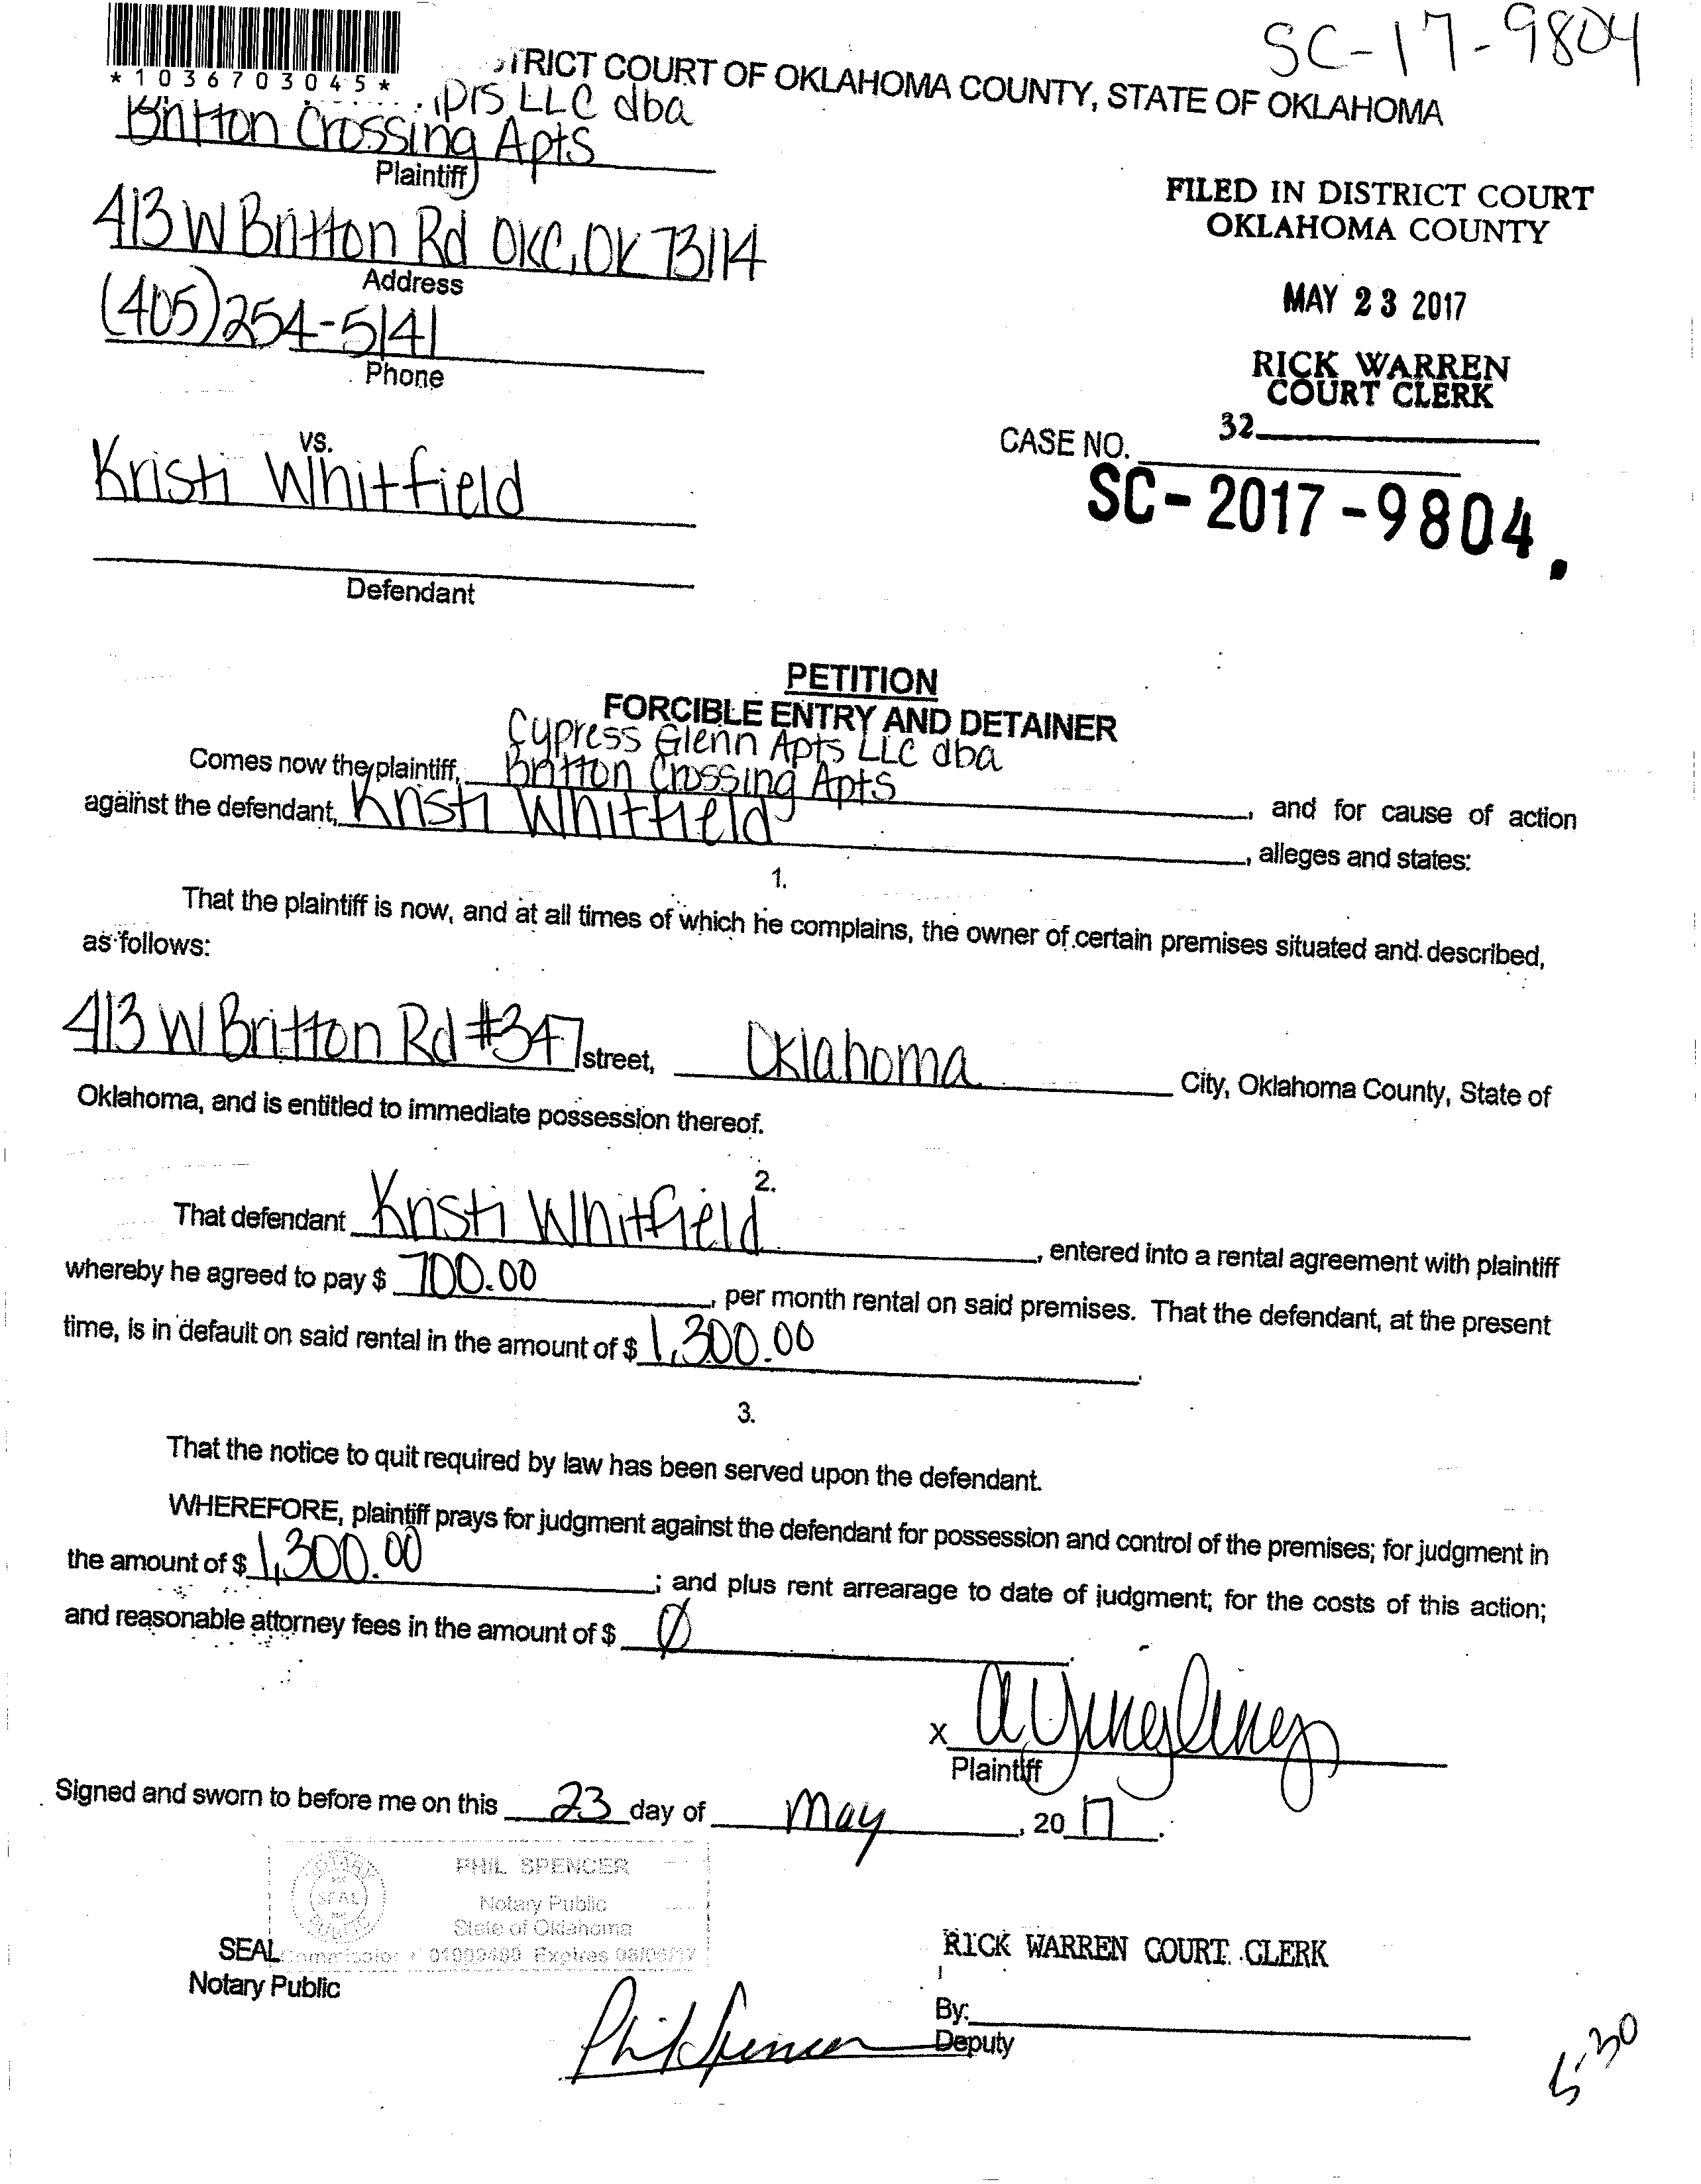 SC-17-9804
*1036703045*
TRICT COURT OF OKLAHOMA COUNTY, STATE OF OKLAHOMA
LLC dba
Britton Crossing Apts
Plaintiff
413 W Britton Rd OKC, OK 73114
Address
(405)254-5141
Phone
FILED IN DISTRICT COURT
OKLAHOMA COUNTY
MAY 23 2017
RICK WARREN
COURT CLERK
32
CASE NO.
SC-2017-9804.
vs.
Kristi Whitfield
Defendant
PETITION
FORCIBLE ENTRY AND DETAINER
Cypress Glenn Apts LLC dba
Comes now the plaintiff, Britton Crossing Apts, and for cause of action
against the defendant, Kristi Whitfield, alleges and states:
1.
That the plaintiff is now, and at all times of which he complains, the owner of certain premises situated and described,
as follows:
413 W Britton Rd #347 street, Oklahoma City, Oklahoma County, State of
Oklahoma, and is entitled to immediate possession thereof.
2.
That defendant Kristi Whitfield, entered into a rental agreement with plaintiff
whereby he agreed to pay $ 700.00, per month rental on said premises. That the defendant, at the present
time, is in default on said rental in the amount of $ 1,300.00.
3.
That the notice to quit required by law has been served upon the defendant.
WHEREFORE, plaintiff prays for judgment against the defendant for possession and control of the premises; for judgment in
the amount of $ 1,300.00; and plus rent arrearage to date of judgment; for the costs of this action;
and reasonable attorney fees in the amount of $ Ø.
x a yingling
Plaintiff
Signed and sworn to before me on this 23 day of May, 2017.
PHIL SPENCER
Notary Public
State of Oklahoma
SEAL
Commission # 01009480 Expires 08/06/17
Notary Public
Phil Spencer
RICK WARREN COURT CLERK
By:
Deputy
5-30